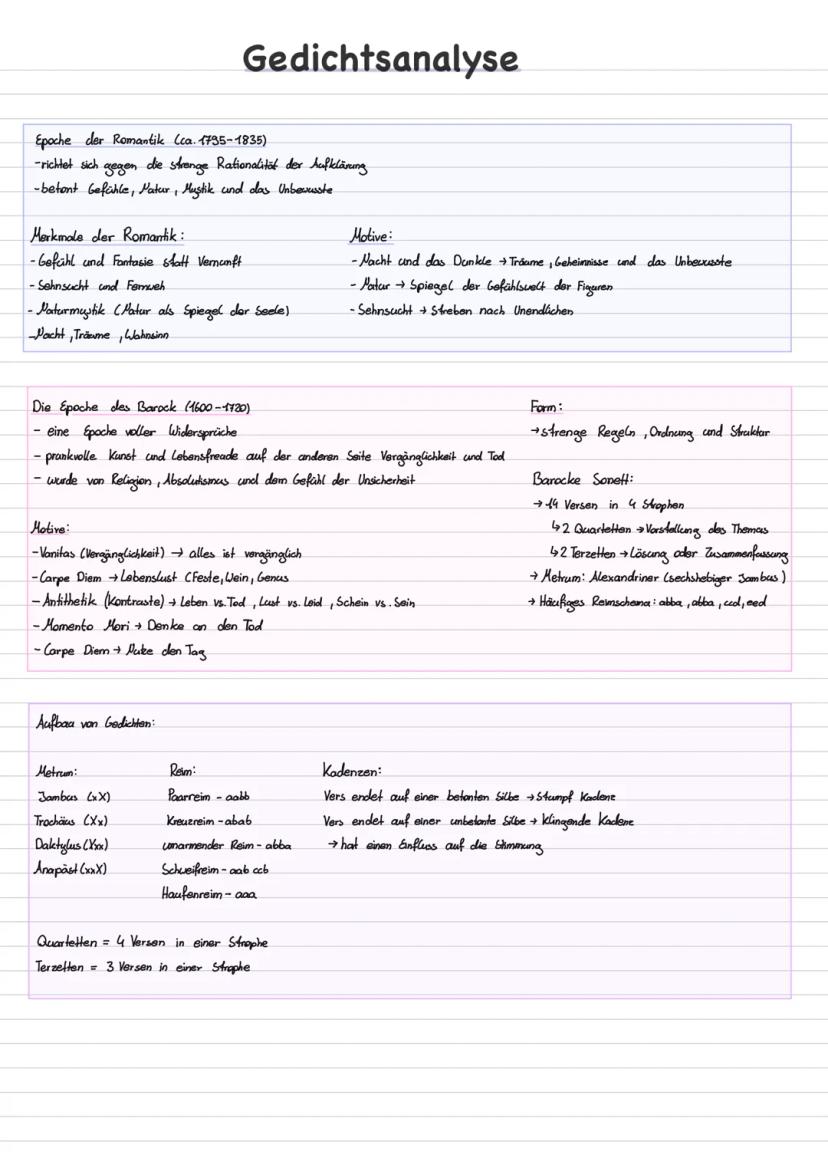 Gedichtsanalyse
Epoche der Romantik (ca. 1795-1835)
-richtet sich gegen die strenge Rationalität der Aufklärung
-betont Gefühle, Natur, Mystik und das Unbewusste
Merkmale der Romantik:
- Gefühl und Fantasie statt Vernunft
- Sehnsucht und Fernweh
- Naturmystik (Natur als Spiegel der Seele)
-Nacht, Träume, Wahnsinn
Motive:
- Nacht und das Dunkle → Träume, Geheimnisse und das Unbewusste
- Natur → Spiegel der Gefühlswelt der Figuren
- Sehnsucht → Streben nach Unendlichen
Die Epoche des Barock (1600-1720)
- eine Epoche voller Widersprüche
- prankvolle Kunst und Lebensfreude auf der anderen Seite Vergänglichkeit und Tod
- wurde von Religion, Absolutismus und dem Gefühl der Unsicherheit
Motive:
-Vanitas (Vergänglichkeit) → alles ist vergänglich
-Carpe Diem → Lebenslust (Feste, Wein, Genus
- Antithetik (Kontraste) → Leben vs. Tod, Lust vs. Leid, Schein vs. Sein
- Momento Mori → Denke an den Tod
- Carpe Diem → Nutze den Tag
Form:
→ strenge Regeln, Ordnung und Struktur
Barocke Sonett:
→ 14 Versen in 4 Strophen
↳ 2 Quartetten → Vorstellung des Themas
↳ 2 Terzetten → Lösung oder Zusammenfassung
→ Metrum: Alexandriner (sechshebiger Jambus)
→ Häufiges Reimschema: abba, abba, ccd, eed
Aufbau von Gedichten:
Metrum:
Jambus (xX)
Trochäus (Xx)
Daktylus (Xxx)
Anapäst (xxX)
Reim:
Paarreim - aabb
Kreuzreim - abab
umarmender Reim - abba
Schweifreim - aab ccb
Haufenreim - aaa
Kadenzen:
Vers endet auf einer betonten Silbe → Stumpf Kadenz
Vers endet auf einer unbetonte Silbe → klingende Kadenz
→ hat einen Einfluss auf die Stimmung
Quartetten = 4 Versen in einer Strophe
Terzetten = 3 Versen in einer Strophe